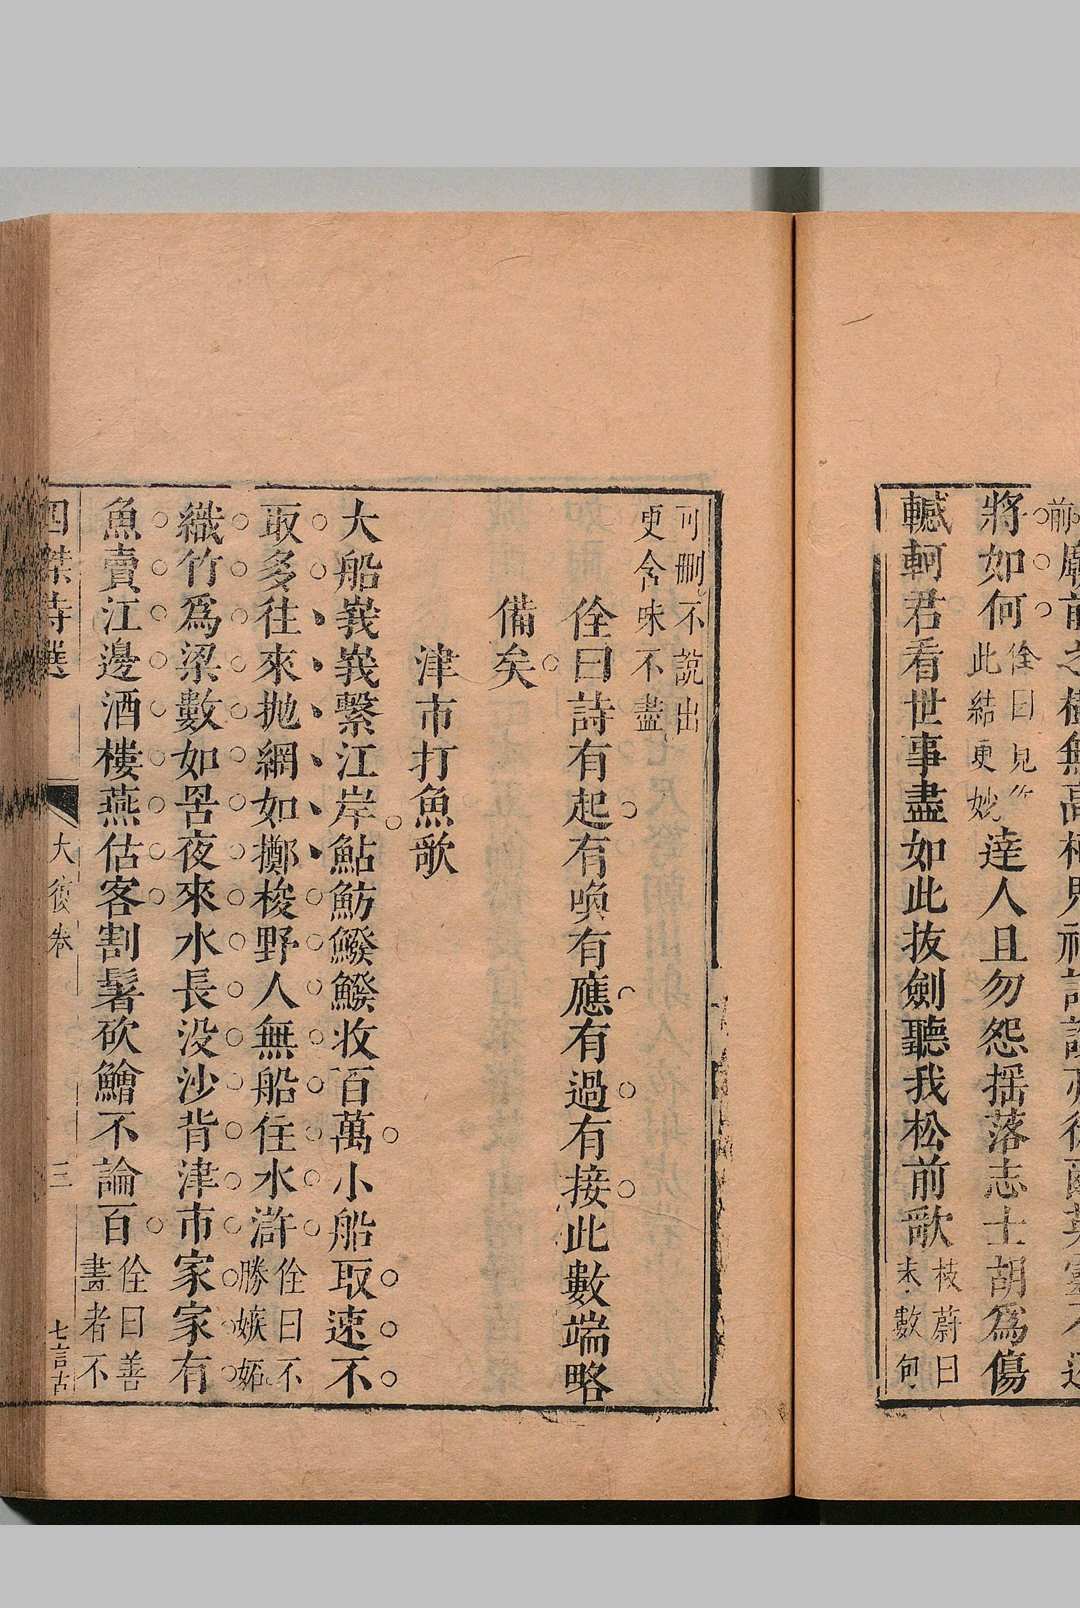 廟前之樹無高柯鬼神訶護
將如何佺曰見此結更妙達人且勿怨揺落志士胡爲傷
轗軻君看世事盡如此抜劍聽我松前歌枝蔚曰末數句
可刪不說出
更含味不盡
佺曰詩有起有喚有應有過有接此數端略
備矣
津市打魚歌
大船峩峩繫江岸鮎魴鱍鱍收百萬小船取速不
取多往來抛網如擲梭野人無船住水滸佺曰不勝嫉妬
織竹爲梁數如罟夜來水長没沙背津市家家有
魚賣江邊酒樓燕估客割鬐砍鱠不論百佺曰善畫者不
四傑詩選
大復卷
三
七言古